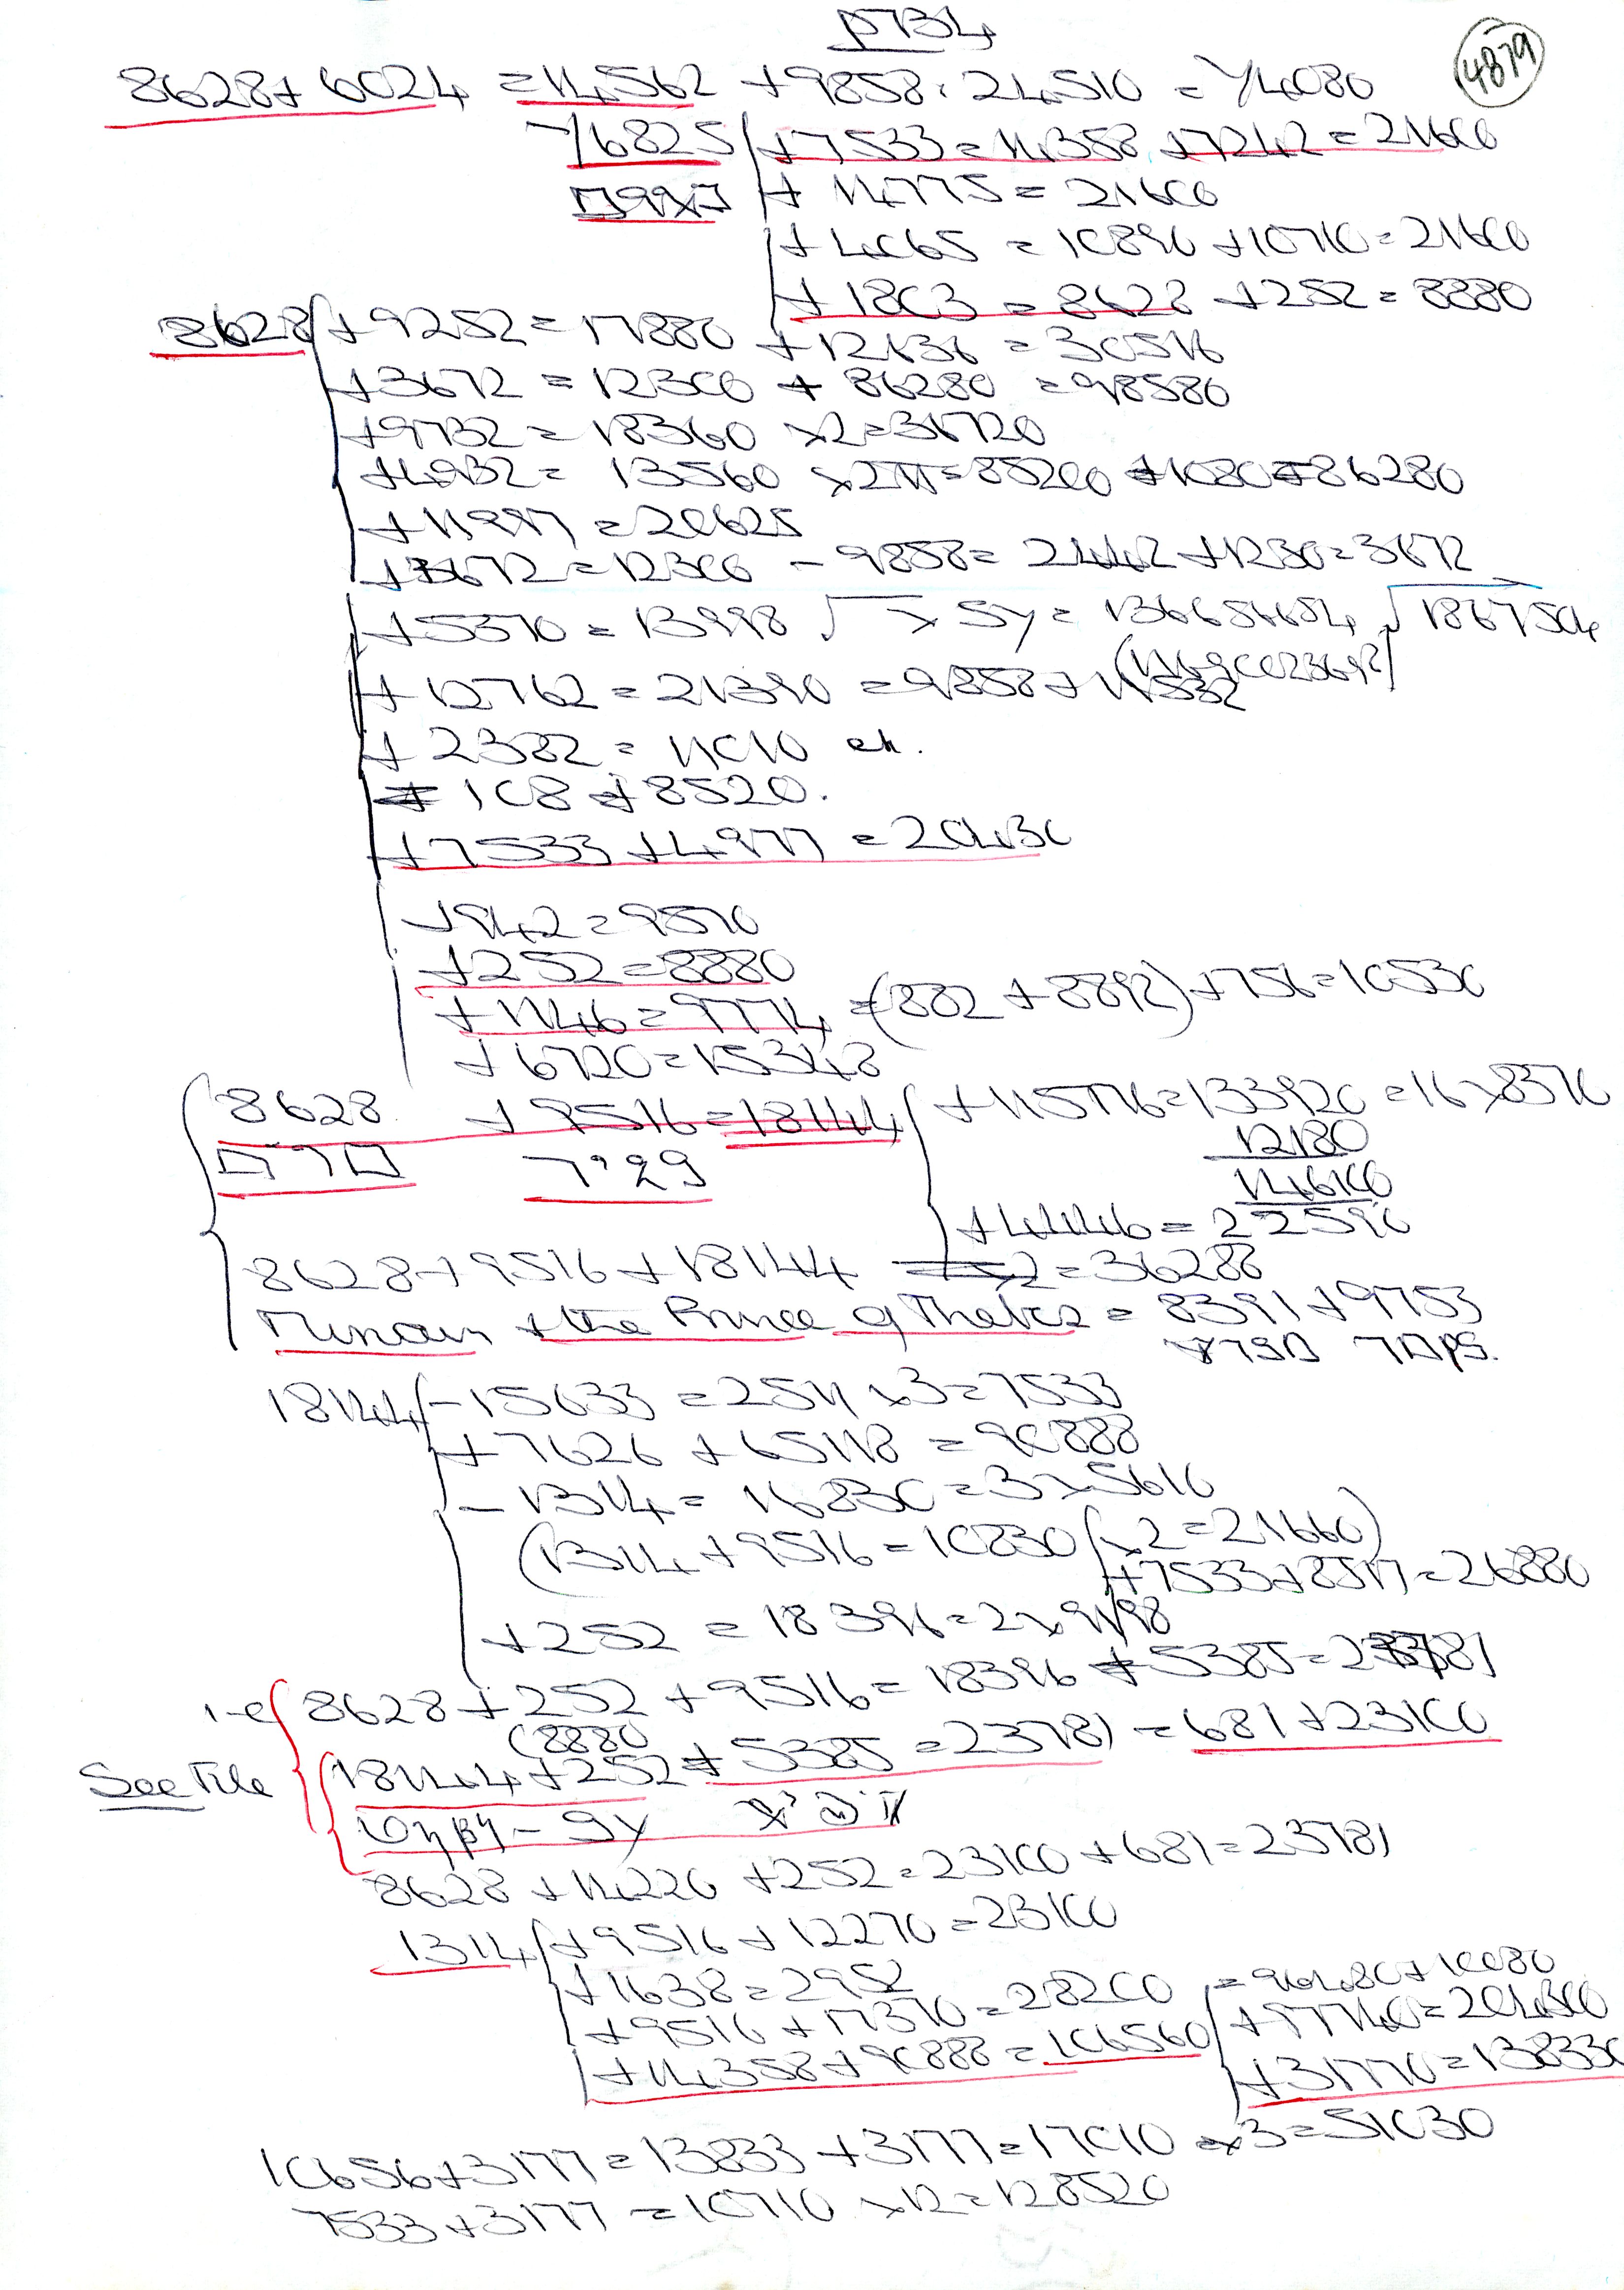 4879
8628 + 6024 = 14562 + 9858 · 24510 = 74080
6825 + 7533 = 14358 + 7242 = 21600
+ 14775 = 21600
+ 4065 = 10890 + 10710 = 21600
+ 1803 = 8628 + 252 = 8880
8628 + 9252 = 17880 + 12636 = 30516
+ 3672 = 12300 + 86280 = 98580
+ 9732 = 18360 x2 = 36720
+ 4932 = 13560 = 85200 + 1080 = 86280
+ 11997 = 20625
+ 3672 = 12300 - 9858 = 2442 + 1230 = 3672
+ 5370 = 13998
+ 12762 = 21390 = 9858 + 11532
+ 2382 = 11010
= 108 + 8520.
+ 7533 + 4977 = 20430
+ 942 = 9570
+ 252 = 8880
+ 1146 = 9774 = (882 + 8892) + 756 = 10530
+ 6720 = 15348
8628 + 9516 = 18144 + 115776 = 133920 = 16 x 8370
12180
14610
+ 4446 = 22590
8628 + 9516 + 18144 = 36288
the Prince of = 8391 + 9753
18144 - 15633 = 2511 x3 = 7533
+ 7626 + 65118 = 90888
- 1314 = 16830 = 3 x 5610
(1314 + 9516 = 10830 x2 = 21660)
+ 7533 + 8517 = 26880
+ 252 = 18396 = 2 x 9198
i-e 8628 + 252 + 9516 = 18396 + 5385 = 23781
(8880
See File 18144 + 252 + 5385 = 23781 = 681 + 23100
8628 + 14220 + 252 = 23100 + 681 = 23781
1314 + 9516 + 12270 = 23100
+ 1638 = 2952
+ 9516 + 17370 = 28200 = 96480 + 10080
+ 97740 = 204300
+ 14358 + 90888 = 106560 + 31770 = 138330
10656 + 3177 = 13833 + 3177 = 17010 x3 = 51030
7533 + 3177 = 10710 x12 = 128520